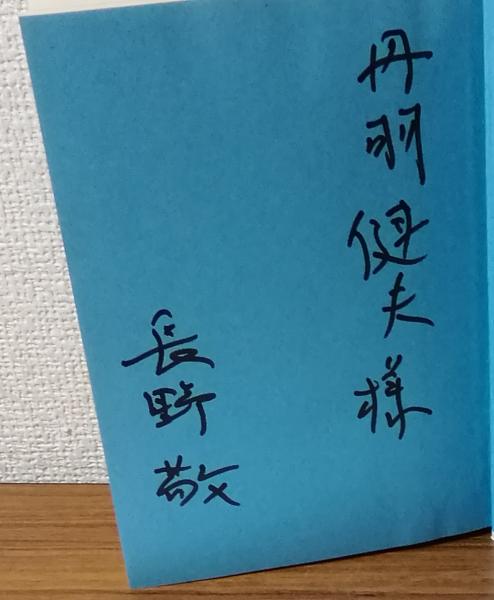 丹羽健夫様
長野敬